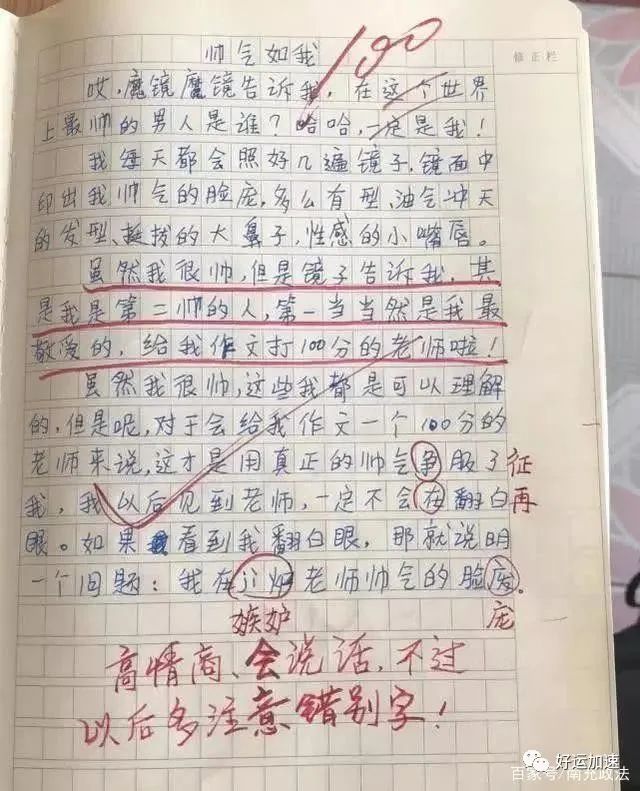 帅气如我
100
修正栏
哎，魔镜魔镜告诉我，在这个世界
上最帅的男人是谁？哈哈，一定是我！
我每天都会照好几遍镜子，镜面中
印出我帅气的脸庞，多么有型、油气冲天
的发型、挺拔的大鼻子，性感的小嘴唇。
虽然我很帅，但是镜子告诉我，其
是我是第二帅的人，第一当当然是我最
敬爱的，给我作文打100分的老师啦！
虽然我很帅，这些我都是可以理解
的，但是呢，对于会给我作文一个100分的
老师来说，这才是用真正的帅气争服了 征
我，我以后见到老师，一定不会在翻白 再
眼。如果 看到我翻白眼，那就说明
一个问题：我在 老师帅气的脸 。
嫉妒 庞
高情商、会说话，不过
以后多注意错别字！
好运加速
百家号/南充政法